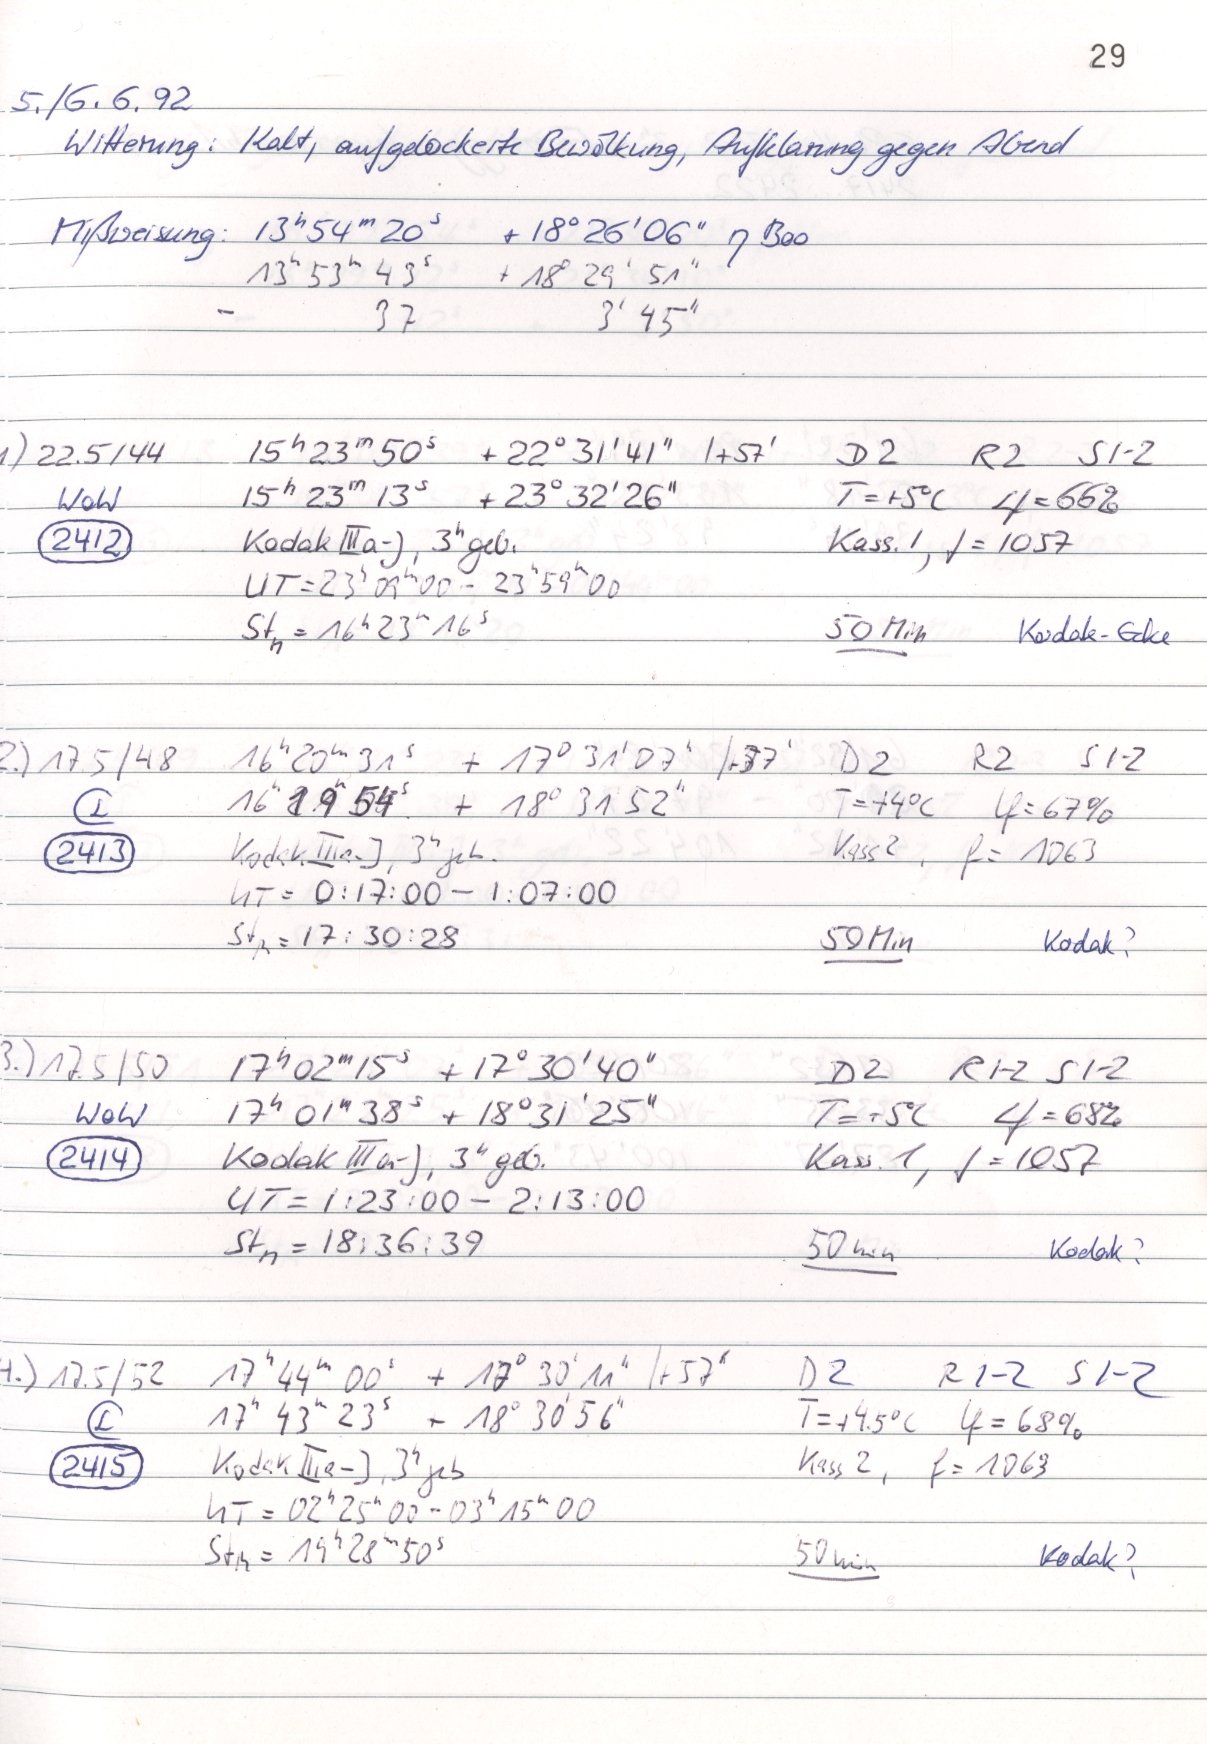 29
5./6.6.92
Witterung: Kalt, aufgelockerte Bewölkung, Aufklarung gegen Abend
Mißweisung: 13ʰ54ᵐ20ˢ +18°26'06" η Boo
13ʰ53ᵐ43ˢ +18°29'51"
- 37 3'45"
1) 22.5/44 15ʰ23ᵐ50ˢ +22°31'41" /+57' D2 R2 S1-2
WoW 15ʰ23ᵐ13ˢ +23°32'26" T=+5°C φ=66%
2412 Kodak IIIa-J, 3ʰ geb. Kass. 1, f=1057
UT=23ʰ09ᵐ00 - 23ʰ59ᵐ00
Stₙ = 16ʰ23ᵐ16ˢ 50 Min Kodak-Ecke
2.) 17.5/48 16ʰ20ᵐ31ˢ +17°31'07" /+37' D2 R2 S1-2
16ʰ19ᵐ54ˢ +18°31'52" T=+4°C φ=67%
2413 Kodak IIIa-J, 3ʰ geb. Kass 2, f=1063
UT = 0:17:00 - 1:07:00
Stₙ = 17:30:28 50 Min Kodak?
3.) 17.5/50 17ʰ02ᵐ15ˢ +17°30'40" D2 R1-2 S1-2
WoW 17ʰ01ᵐ38ˢ +18°31'25" T=+5°C φ=68%
2414 Kodak IIIa-J, 3ʰ geb. Kass. 1, f=1057
UT = 1:23:00 - 2:13:00
Stₙ = 18:36:39 50 min Kodak?
4.) 17.5/52 17ʰ44ᵐ00ˢ +17°30'11" /+57' D2 R1-2 S1-2
17ʰ43ᵐ23ˢ +18°30'56" T=+4.5°C φ=68%
2415 Kodak IIIa-J, 3ʰ geb Kass 2, f=1063
UT = 02ʰ25ᵐ00 - 03ʰ15ᵐ00
Stₙ = 19ʰ28ᵐ50ˢ 50 min Kodak?